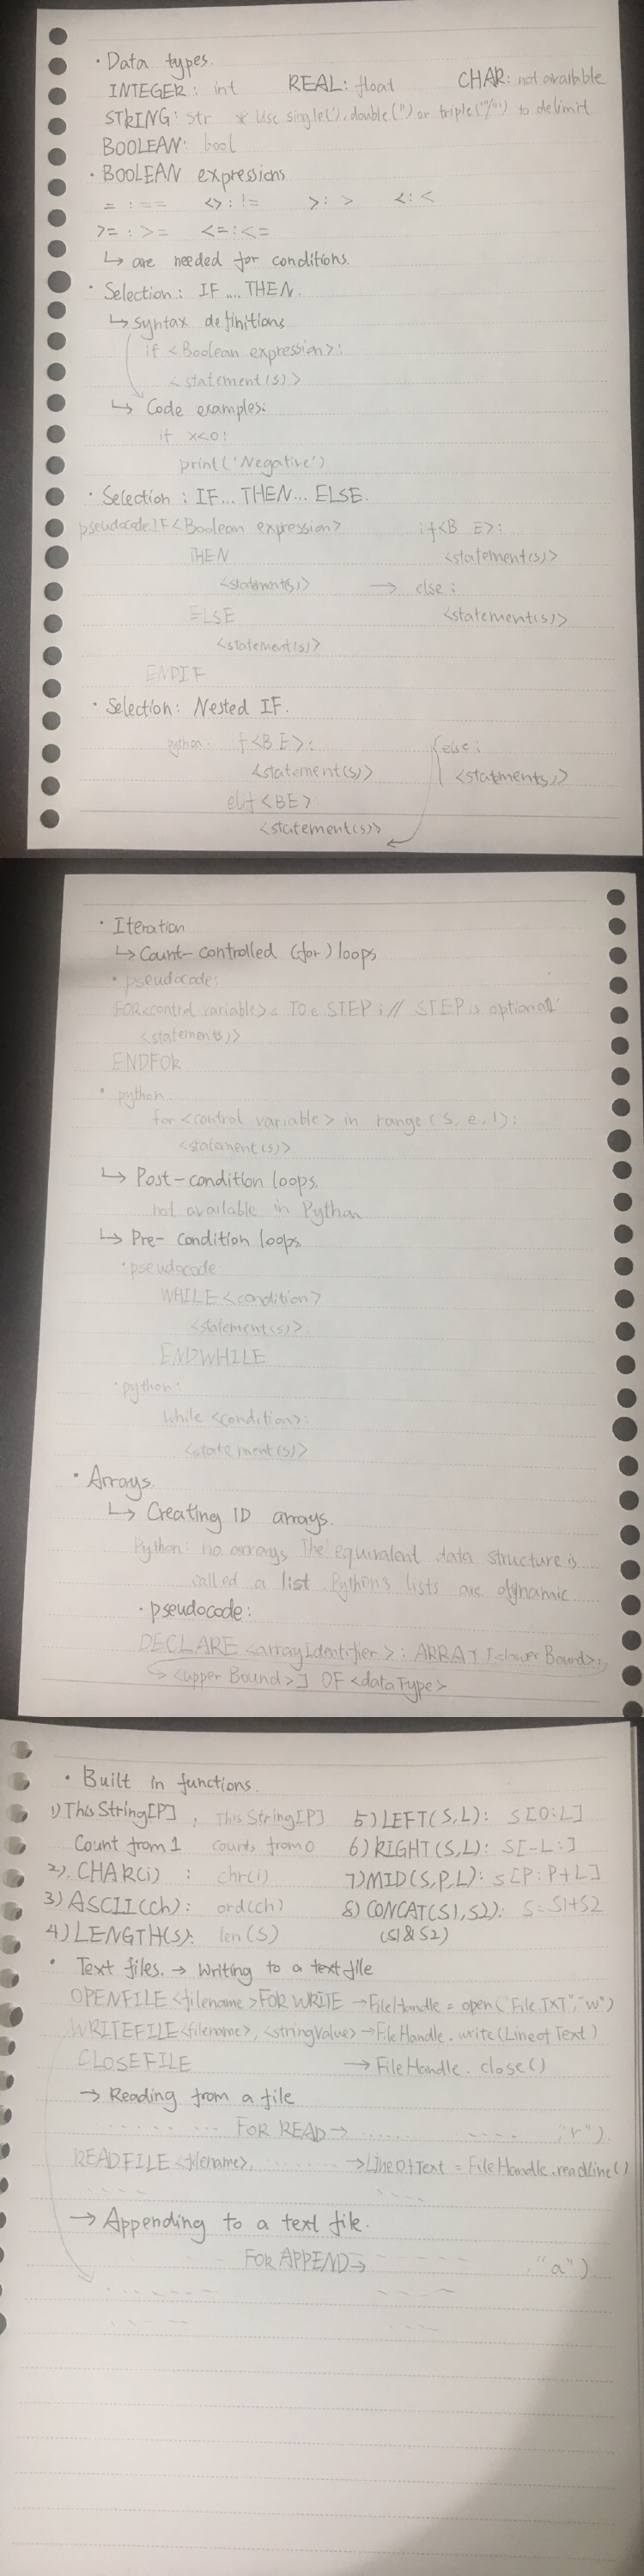 · Data types.
INTEGER: int REAL: float CHAR: not available
STRING: str * Use single('), double(") or triple("""/''') to delimit
BOOLEAN: bool
· BOOLEAN expressions
= : == <> : != > : > < : <
>= : >= <= : <=
↳ are needed for conditions.
· Selection: IF .... THEN.
↳ syntax definitions
if <Boolean expression>:
<statement(s)>
↳ Code examples:
if x<0:
print('Negative')
· Selection: IF... THEN... ELSE.
pseudocode: IF <Boolean expression> if <B E>:
THEN <statement(s)>
<statement(s)> → else:
ELSE <statement(s)>
<statement(s)>
ENDIF
· Selection: Nested IF.
python: if <B E>: else:
<statement(s)> <statement(s)>
elif <BE>:
<statement(s)>
· Iteration
↳ Count-controlled (for) loops
· pseudocode:
FOR <control variable> s TO e STEP i // STEP is optional
<statement(s)>
ENDFOR
· python.
for <control variable> in range (s, e, i):
<statement(s)>
↳ Post-condition loops.
not available in Python
↳ Pre-condition loops.
· pseudocode
WHILE <condition>
<statement(s)>
ENDWHILE
· python:
while <condition>:
<statement(s)>
· Arrays
↳ Creating 1D arrays.
Python: no arrays. The equivalent data structure is
called a list. Python's lists are dynamic
· pseudocode:
DECLARE <arrayIdentifier> : ARRAY [<lower Bound>:
↳ <upper Bound>] OF <dataType>
· Built in functions.
1) ThisString[P] , ThisString[P] 5) LEFT(S,L): S[0:L]
Count from 1 counts from 0 6) RIGHT(S,L): S[-L:]
2). CHAR(i) : chr(i) 7) MID(S,P,L): S[P:P+L]
3) ASCII(ch): ord(ch) 8) CONCAT(S1,S2): S=S1+S2
4) LENGTH(S): len(S) (S1&S2)
· Text files. → Writing to a text file
OPENFILE <filename> FOR WRITE → FileHandle = open("File.TXT","w")
WRITEFILE <filename>, <stringValue> → FileHandle.write(LineofText)
CLOSEFILE → FileHandle.close()
→ Reading from a file
...... FOR READ → ...... .... "r").
READFILE <filename>, ...... → LineOfText = FileHandle.readline()
→ Appending to a text file.
FOR APPEND → "a").